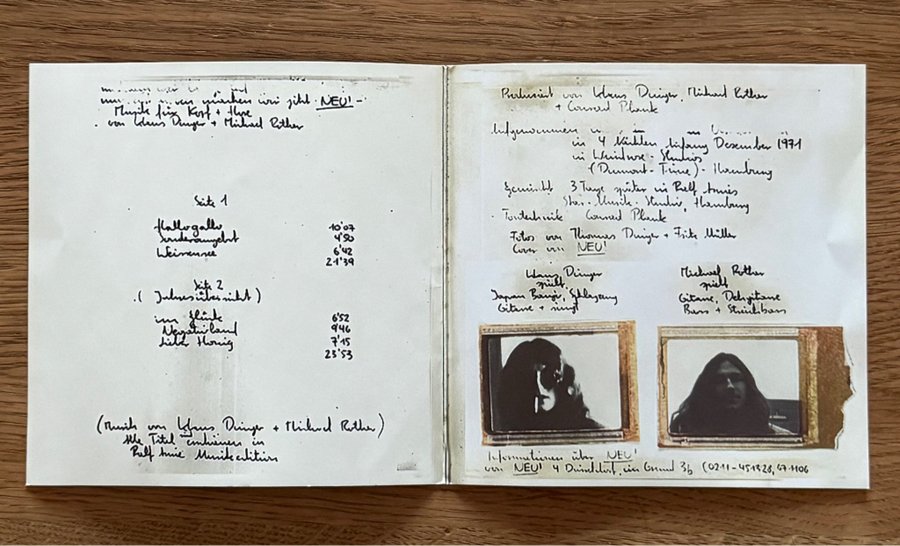 NEU! -
Musik für Kopf + Hose
von Klaus Dinger + Michael Rother
Seite 1
Hallogallo 10'07
Sonderangebot 4'50
Weissensee 6'42
21'39
Seite 2
(Jahresübersicht)
im Glück 6'52
Negativland 9'46
lieber Honig 7'15
23'53
(Musik von Klaus Dinger + Michael Rother)
Alle Titel in
Ralf Arnie Musikedition
Produziert von Klaus Dinger, Michael Rother
+ Conrad Plank
Aufgenommen
in 4 Nächten Anfang Dezember 1971
in Windrose - Studios
(Dumont-Time) - Hamburg
Gemischt 3 Tage später in Ralf Arnies
Star-Musik-Studio, Hamburg
Tontechnik Conrad Plank
Fotos von Thomas Dinger + Fritz Müller
Cover von NEU!
Klaus Dinger
spielt
Japan Banjo, Schlagzeug
Gitarre + singt
Michael Rother
spielt
Gitarre, Dehgitarre
Bass + Streichbass
Informationen über NEU!
von NEU! 4 Düsseldorf, im Grund 3b (0211-451328, 671106